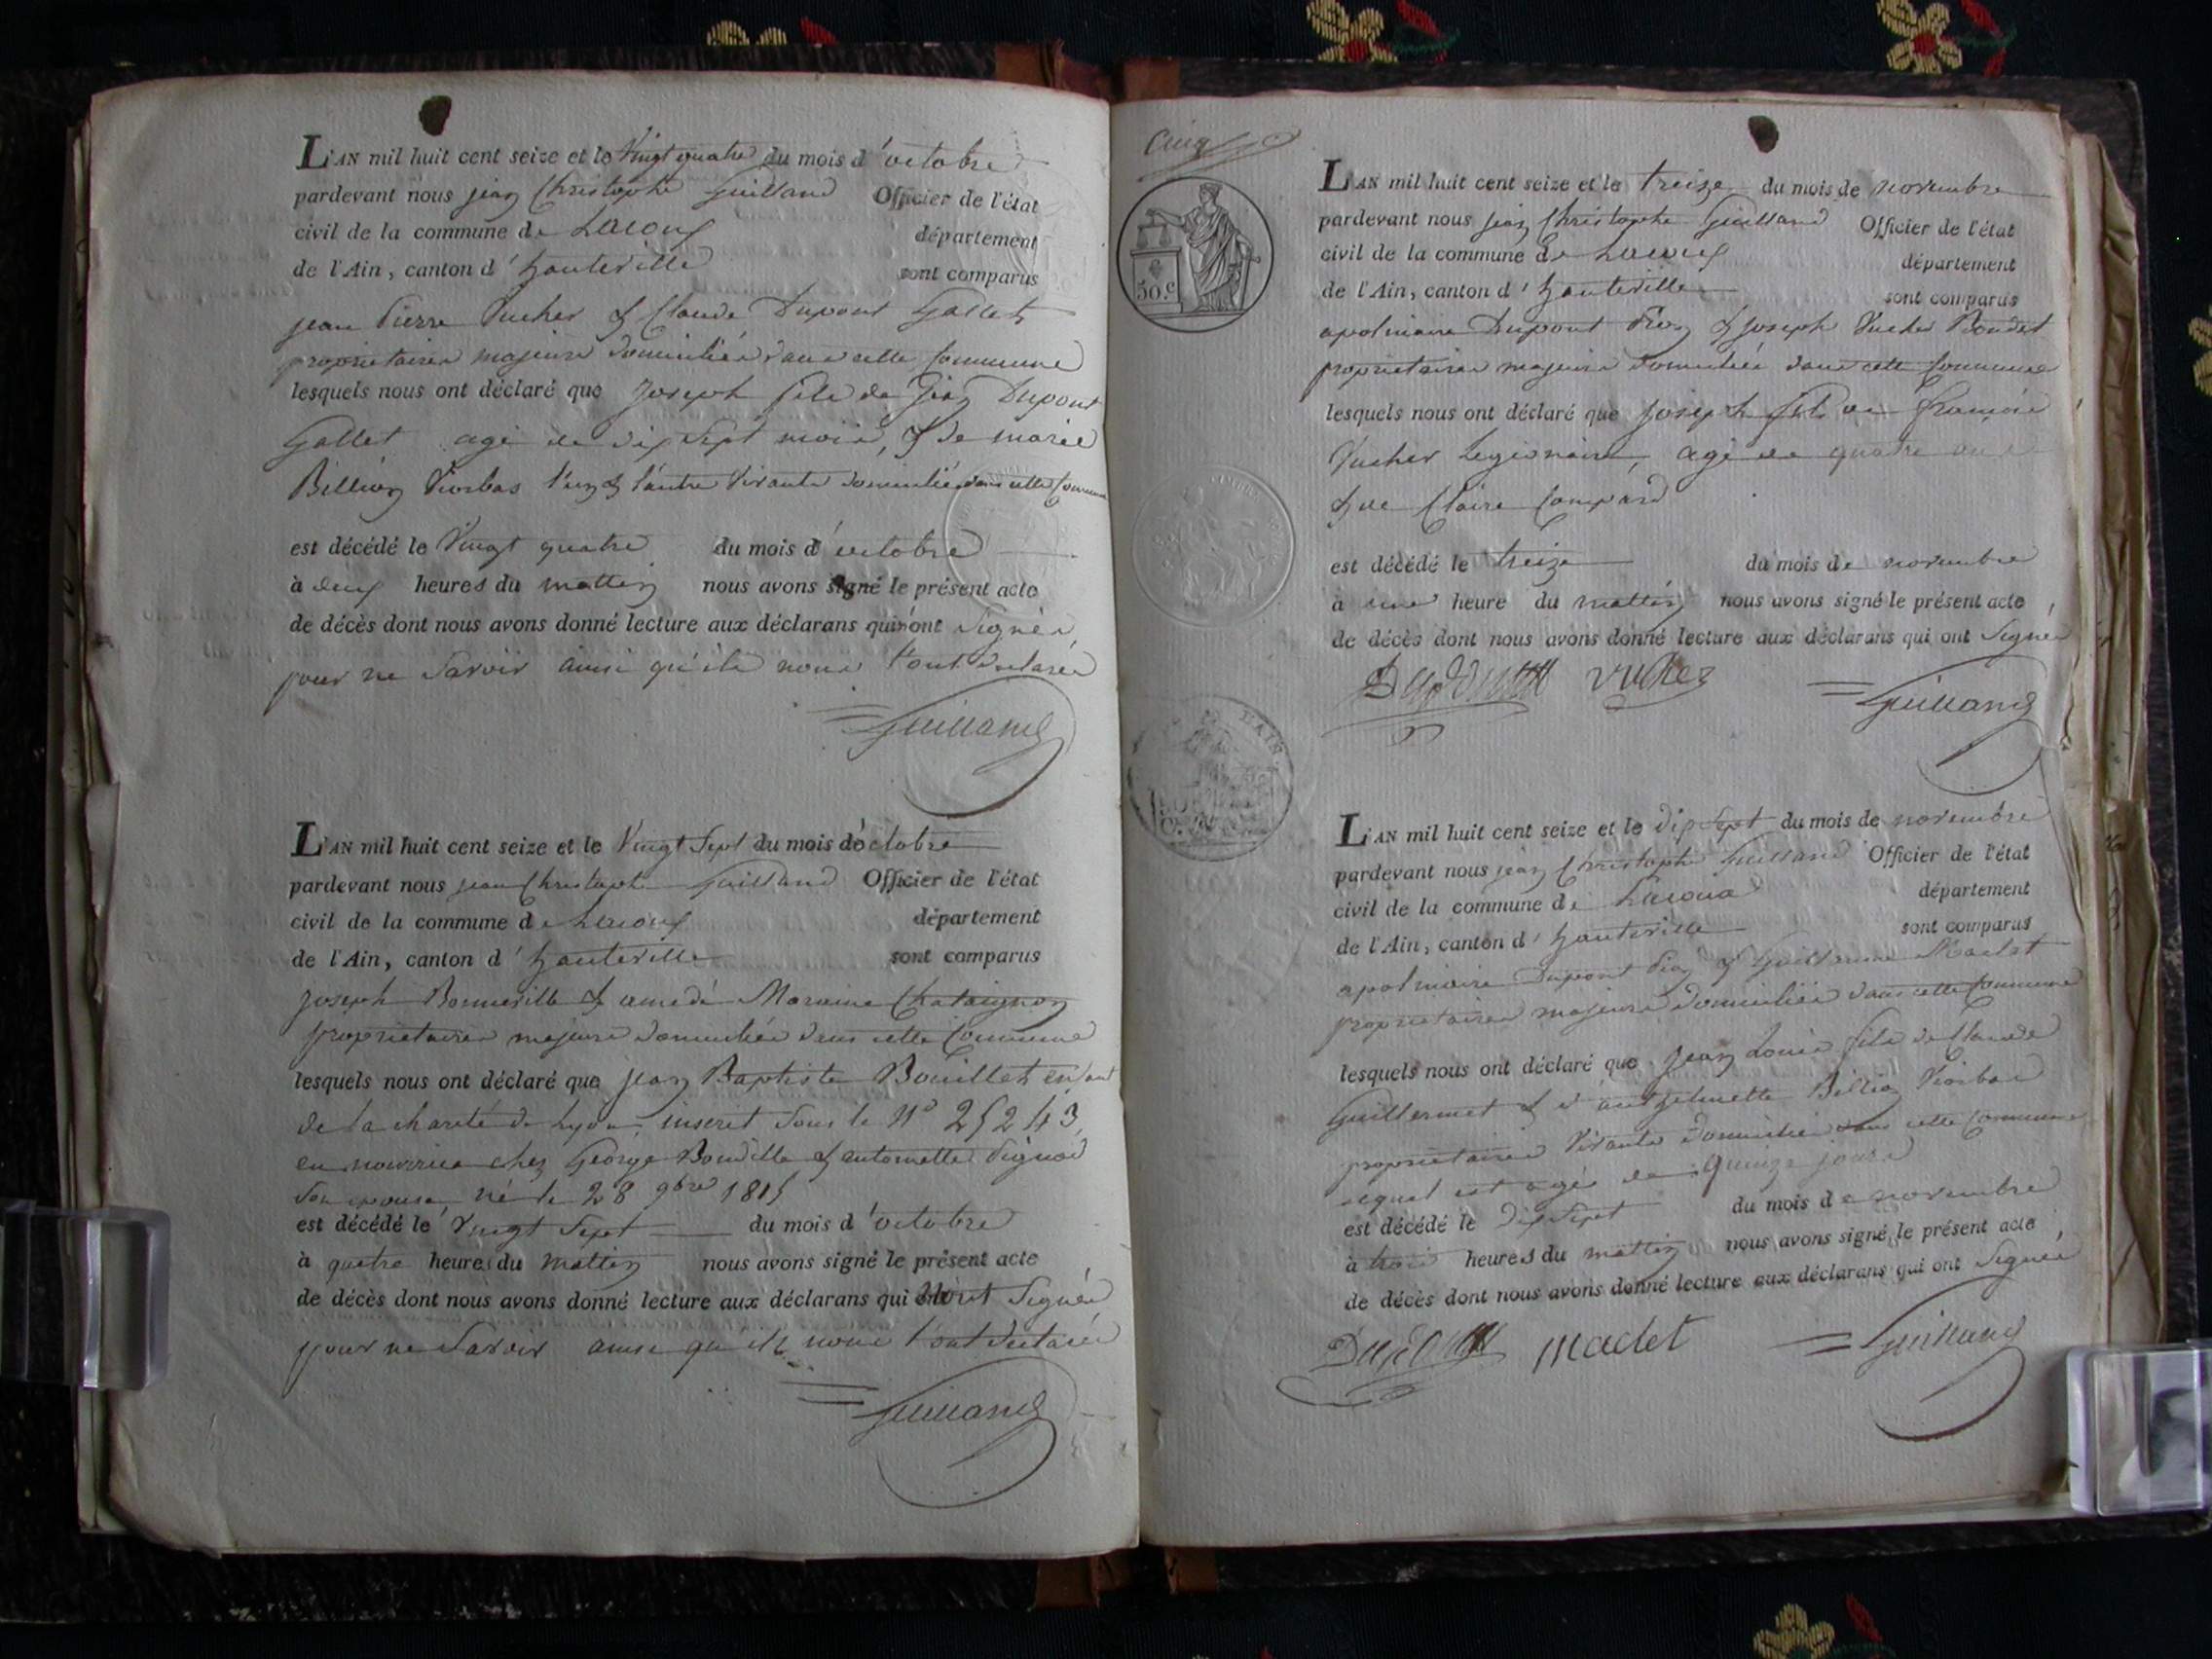 L'AN mil huit cent seize et le Vingt quatre du mois d'octobre
pardevant nous jean Christophe Guilland Officier de l'état
civil de la commune de Lacoux département
de l'Ain, canton d'hauteville sont comparus
jean Pierre Vucher & Claude Dupont Gallet
proprietaires majeurs domiciliés dans cette Commune
lesquels nous ont déclaré que Joseph fils de Jean Dupont
Gallet agé de dix Sept mois, & de marie
Billion Viorbas l'un & l'autre Vivants domiciliés dans cette Commune
est décédé le Vingt quatre du mois d'octobre
à deux heures du mattin nous avons signé le présent acte
de décès dont nous avons donné lecture aux déclarans qui n'ont Signés
pour ne Savoir ainsi qu'ils nous l'ont déclarés
Guilland
L'AN mil huit cent seize et le Vingt Sept du mois d'octobre
pardevant nous jean Christophe Guilland Officier de l'état
civil de la commune de Lacoux département
de l'Ain, canton d'hauteville sont comparus
Joseph Bonneville & amedé Moraine Chataignon
proprietaires majeurs domiciliés dans cette Commune
lesquels nous ont déclaré que jean Baptiste Bouillet enfant
de la charité de Lyon, inscrit Sous le N° 25243,
en nourrice chez George & antoinette
Son epouse, né le 28 9bre 1815
est décédé le Vingt Sept du mois d'octobre
à quatre heures du mattin nous avons signé le présent acte
de décès dont nous avons donné lecture aux déclarans qui n'ont Signés
pour ne Savoir ainsi qu'ils nous l'ont déclarés
Guilland
Cinq
50.c
L'AN mil huit cent seize et le treize du mois de novembre
pardevant nous jean Christophe Guilland Officier de l'état
civil de la commune de Lacoux département
de l'Ain, canton d'hauteville sont comparus
apolinaire Dupont & Joseph Vucher Boudet
proprietaires majeurs domiciliés dans cette Commune
lesquels nous ont déclaré que Joseph fils de françois
Vucher Legionaire, agé de quatre ans
& de Claire Compard
est décédé le treize du mois de novembre
à une heure du mattin nous avons signé le présent acte,
de décès dont nous avons donné lecture aux déclarans qui ont Signés
Dupont Vucher Guilland
L'AN mil huit cent seize et le dix Sept du mois de novembre
pardevant nous jean Christophe Guilland Officier de l'état
civil de la commune de Lacoux département
de l'Ain, canton d'hauteville sont comparus
apolinaire Dupont & Guillaume Maclet
proprietaires majeurs domiciliés dans cette Commune
lesquels nous ont déclaré que Jean Louis fils de Claude
Guillermet & d'anthelmette Billion Viorbas
proprietaires Vivants domiciliés dans cette Commune
lequel est agé de quinze jours
est décédé le dix Sept du mois de novembre
à trois heures du mattin nous avons signé le présent acte,
de décès dont nous avons donné lecture aux déclarans qui ont Signés
Dupont maclet Guilland